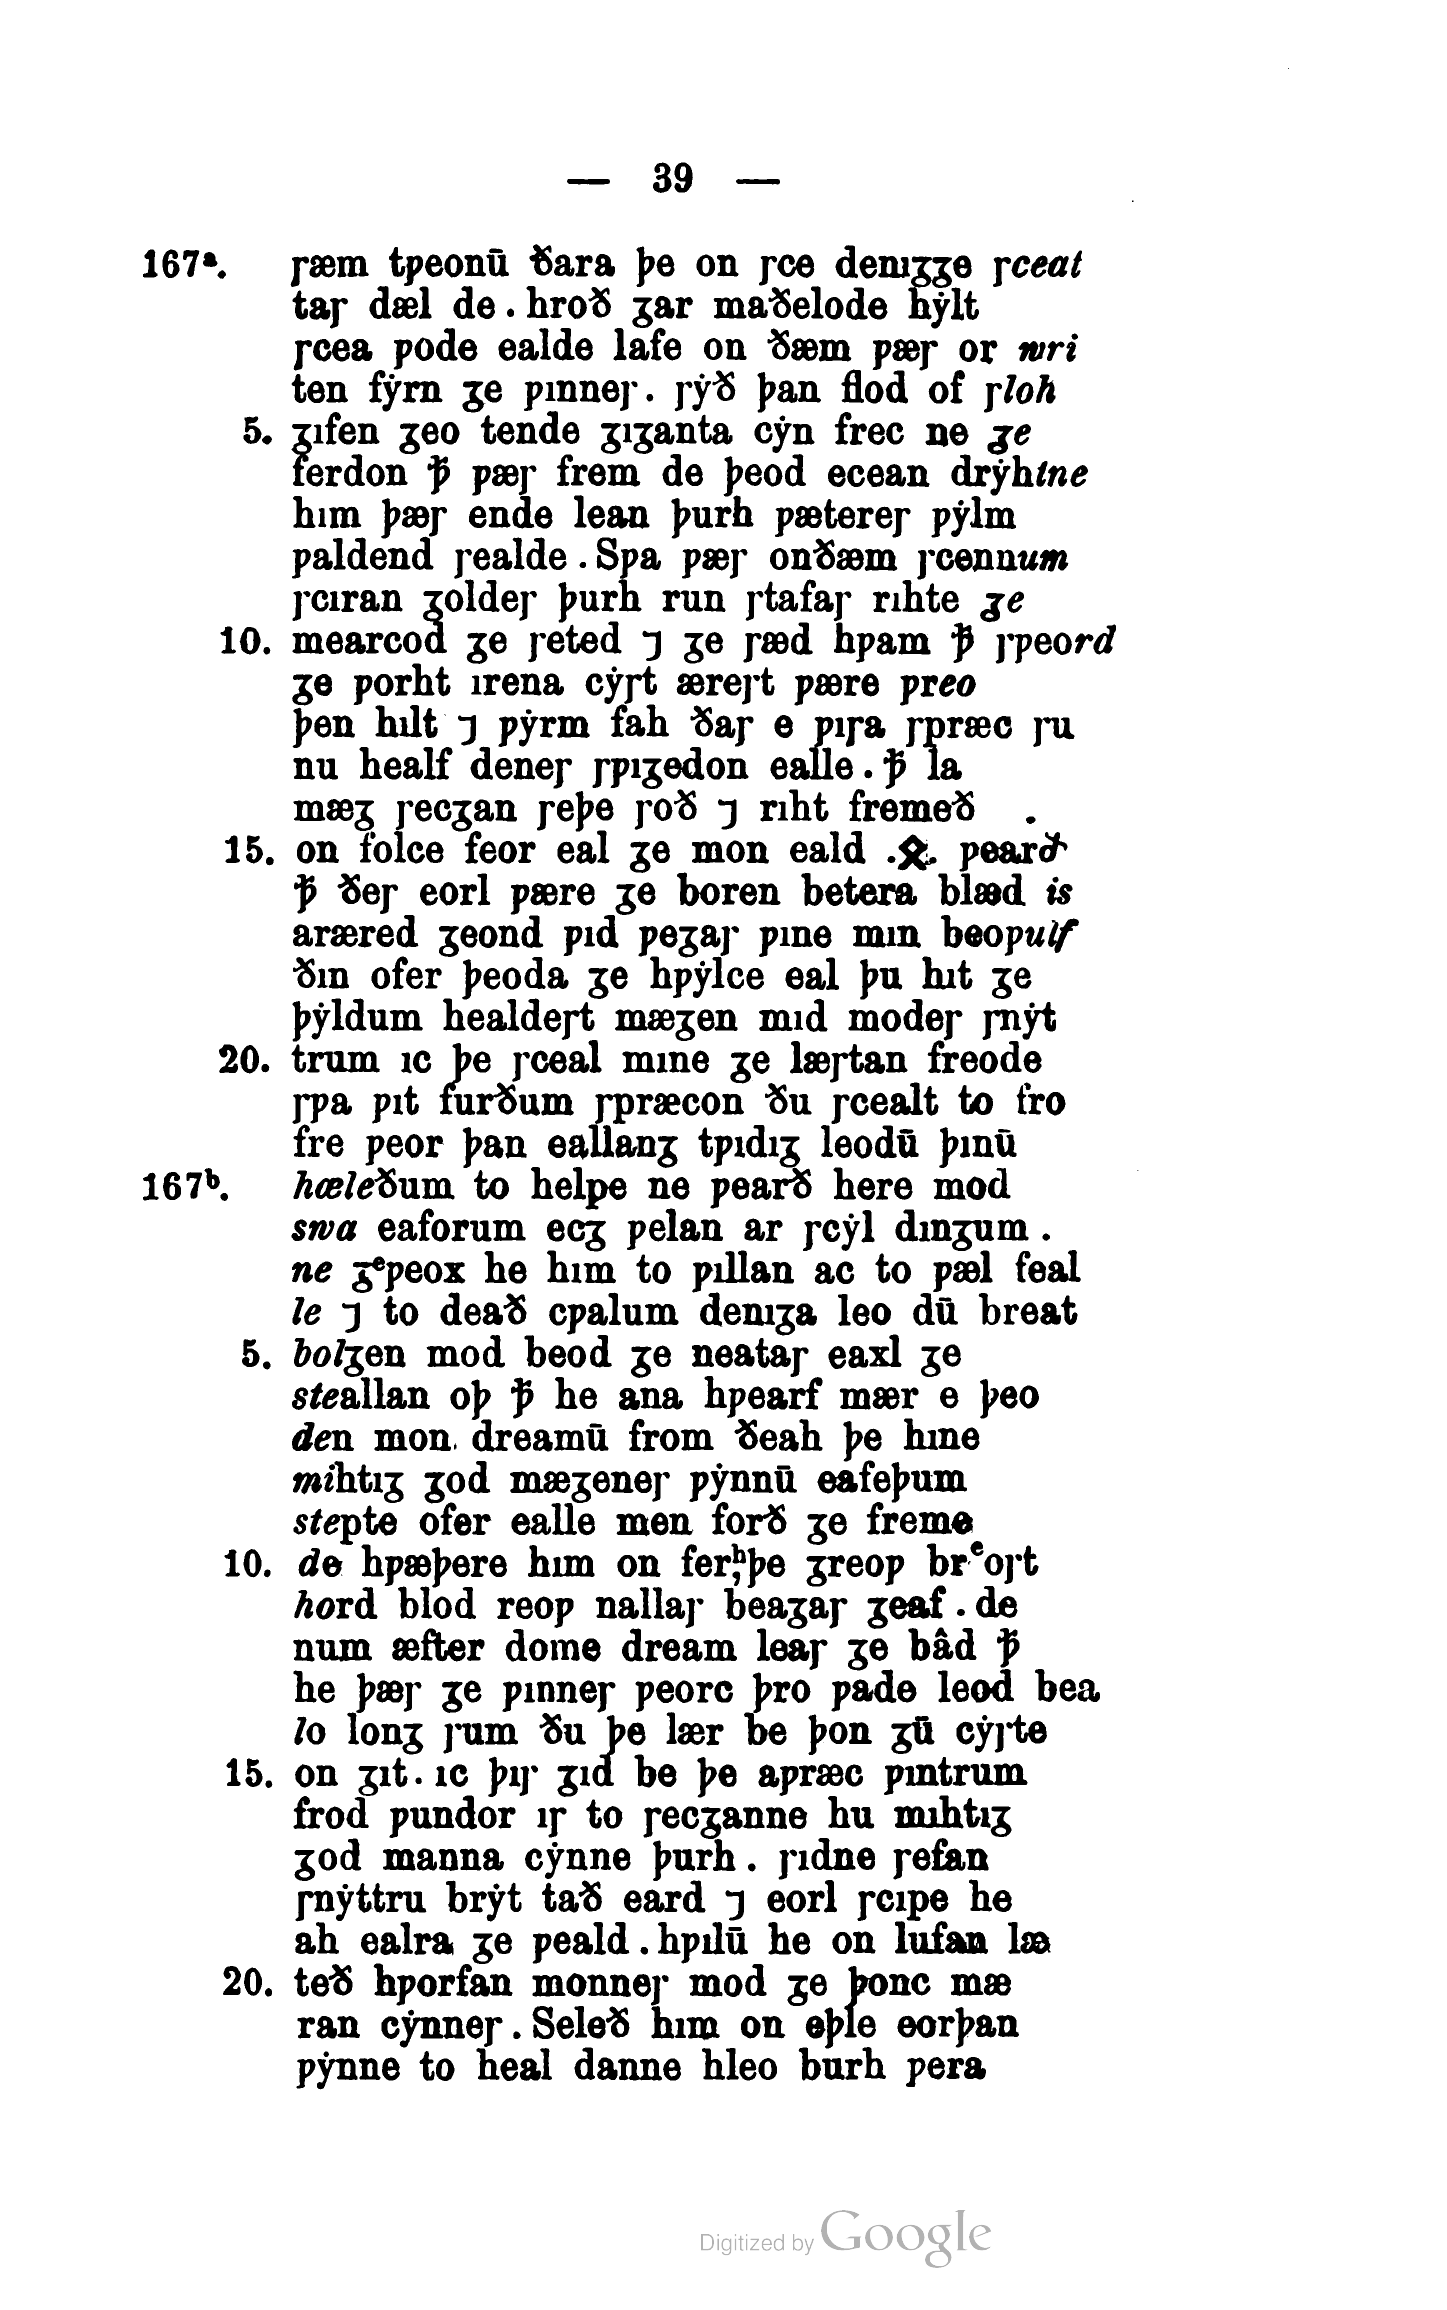 — 39 —
167ᵃ. ꞅæm tƿeonū ðara þe on ꞅce denıʒʒe ꞅceat
taꞅ dæl de . hroð ʒar maðelode hẏlt
ꞅcea ƿode ealde lafe on ðæm ƿæꞅ or wri
ten fẏrn ʒe ƿınneꞅ . ꞅẏð þan flod of ꞅloh
5. ʒıfen ʒeo tende ʒıʒanta cẏn frec ne ʒe
ferdon ꝥ ƿæꞅ frem de þeod ecean drẏhtne
hım þæꞅ ende lean þurh ƿætereꞅ ƿẏlm
ƿaldend ꞅealde . Sƿa ƿæꞅ onðæm ꞅcennum
ꞅcıran ʒoldeꞅ þurh run ꞅtafaꞅ rıhte ʒe
10. mearcod ʒe ꞅeted ⁊ ʒe ꞅæd hƿam ꝥ ꞅƿeord
ʒe ƿorht ırena cẏꞅt æreꞅt ƿære ƿreo
þen hılt ⁊ ƿẏrm fah ðaꞅ e ƿıꞅa ꞅpræc ꞅu
nu healf deneꞅ ꞅƿıʒedon ealle . ꝥ la
mæʒ ꞅecʒan ꞅeþe ꞅoð ⁊ rıht fremeð .
15. on folce feor eal ʒe mon eald .ᛟ. ƿearð
ꝥ ðeꞅ eorl ƿære ʒe boren betera blæd is
aræred ʒeond ƿıd ƿeʒaꞅ ƿıne mın beoƿulf
ðın ofer þeoda ʒe hƿẏlce eal þu hıt ʒe
þẏldum healdeꞅt mæʒen mıd modeꞅ ꞅnẏt
20. trum ıc þe ꞅceal mıne ʒe læꞅtan freode
ꞅƿa ƿıt furðum ꞅpræcon ðu ꞅcealt to fro
fre ƿeor þan eallanʒ tƿıdıʒ leodū þınū
167ᵇ. hæleðum to helpe ne ƿearð here mod
swa eaforum ecʒ ƿelan ar ꞅcẏl dınʒum .
ne ʒᵉƿeox he hım to ƿıllan ac to ƿæl feal
le ⁊ to deað cƿalum denıʒa leo dū breat
5. bolʒen mod beod ʒe neataꞅ eaxl ʒe
steallan oþ ꝥ he ana hƿearf mær e þeo
den mon. dreamū from ðeah þe hıne
mihtıʒ ʒod mæʒeneꞅ ƿẏnnū eafeþum
stepte ofer ealle men forð ʒe freme
10. de hƿæþere hım on ferʰ,þe ʒreoƿ brᵉoꞅt
hord blod reoƿ nallaꞅ beaʒaꞅ ʒeaf . de
num æfter dome dream leaꞅ ʒe bâd ꝥ
he þæꞅ ʒe ƿınneꞅ ƿeorc þro ƿade leod bea
lo lonʒ ꞅum ðu þe lær be þon ʒū cẏꞅte
15. on ʒıt . ıc þıꞅ ʒıd be þe aƿræc ƿıntrum
frod ƿundor ıꞅ to ꞅecʒanne hu mıhtıʒ
ʒod manna cẏnne þurh . ꞅıdne ꞅefan
ꞅnẏttru brẏt tað eard ⁊ eorl ꞅcıpe he
ah ealra ʒe ƿeald . hƿılū he on lufan læ
20. teð hƿorfan monneꞅ mod ʒe þonc mæ
ran cẏnneꞅ . Seleð hım on eþle eorþan
ƿẏnne to heal danne hleo burh ƿera
Digitized by Google